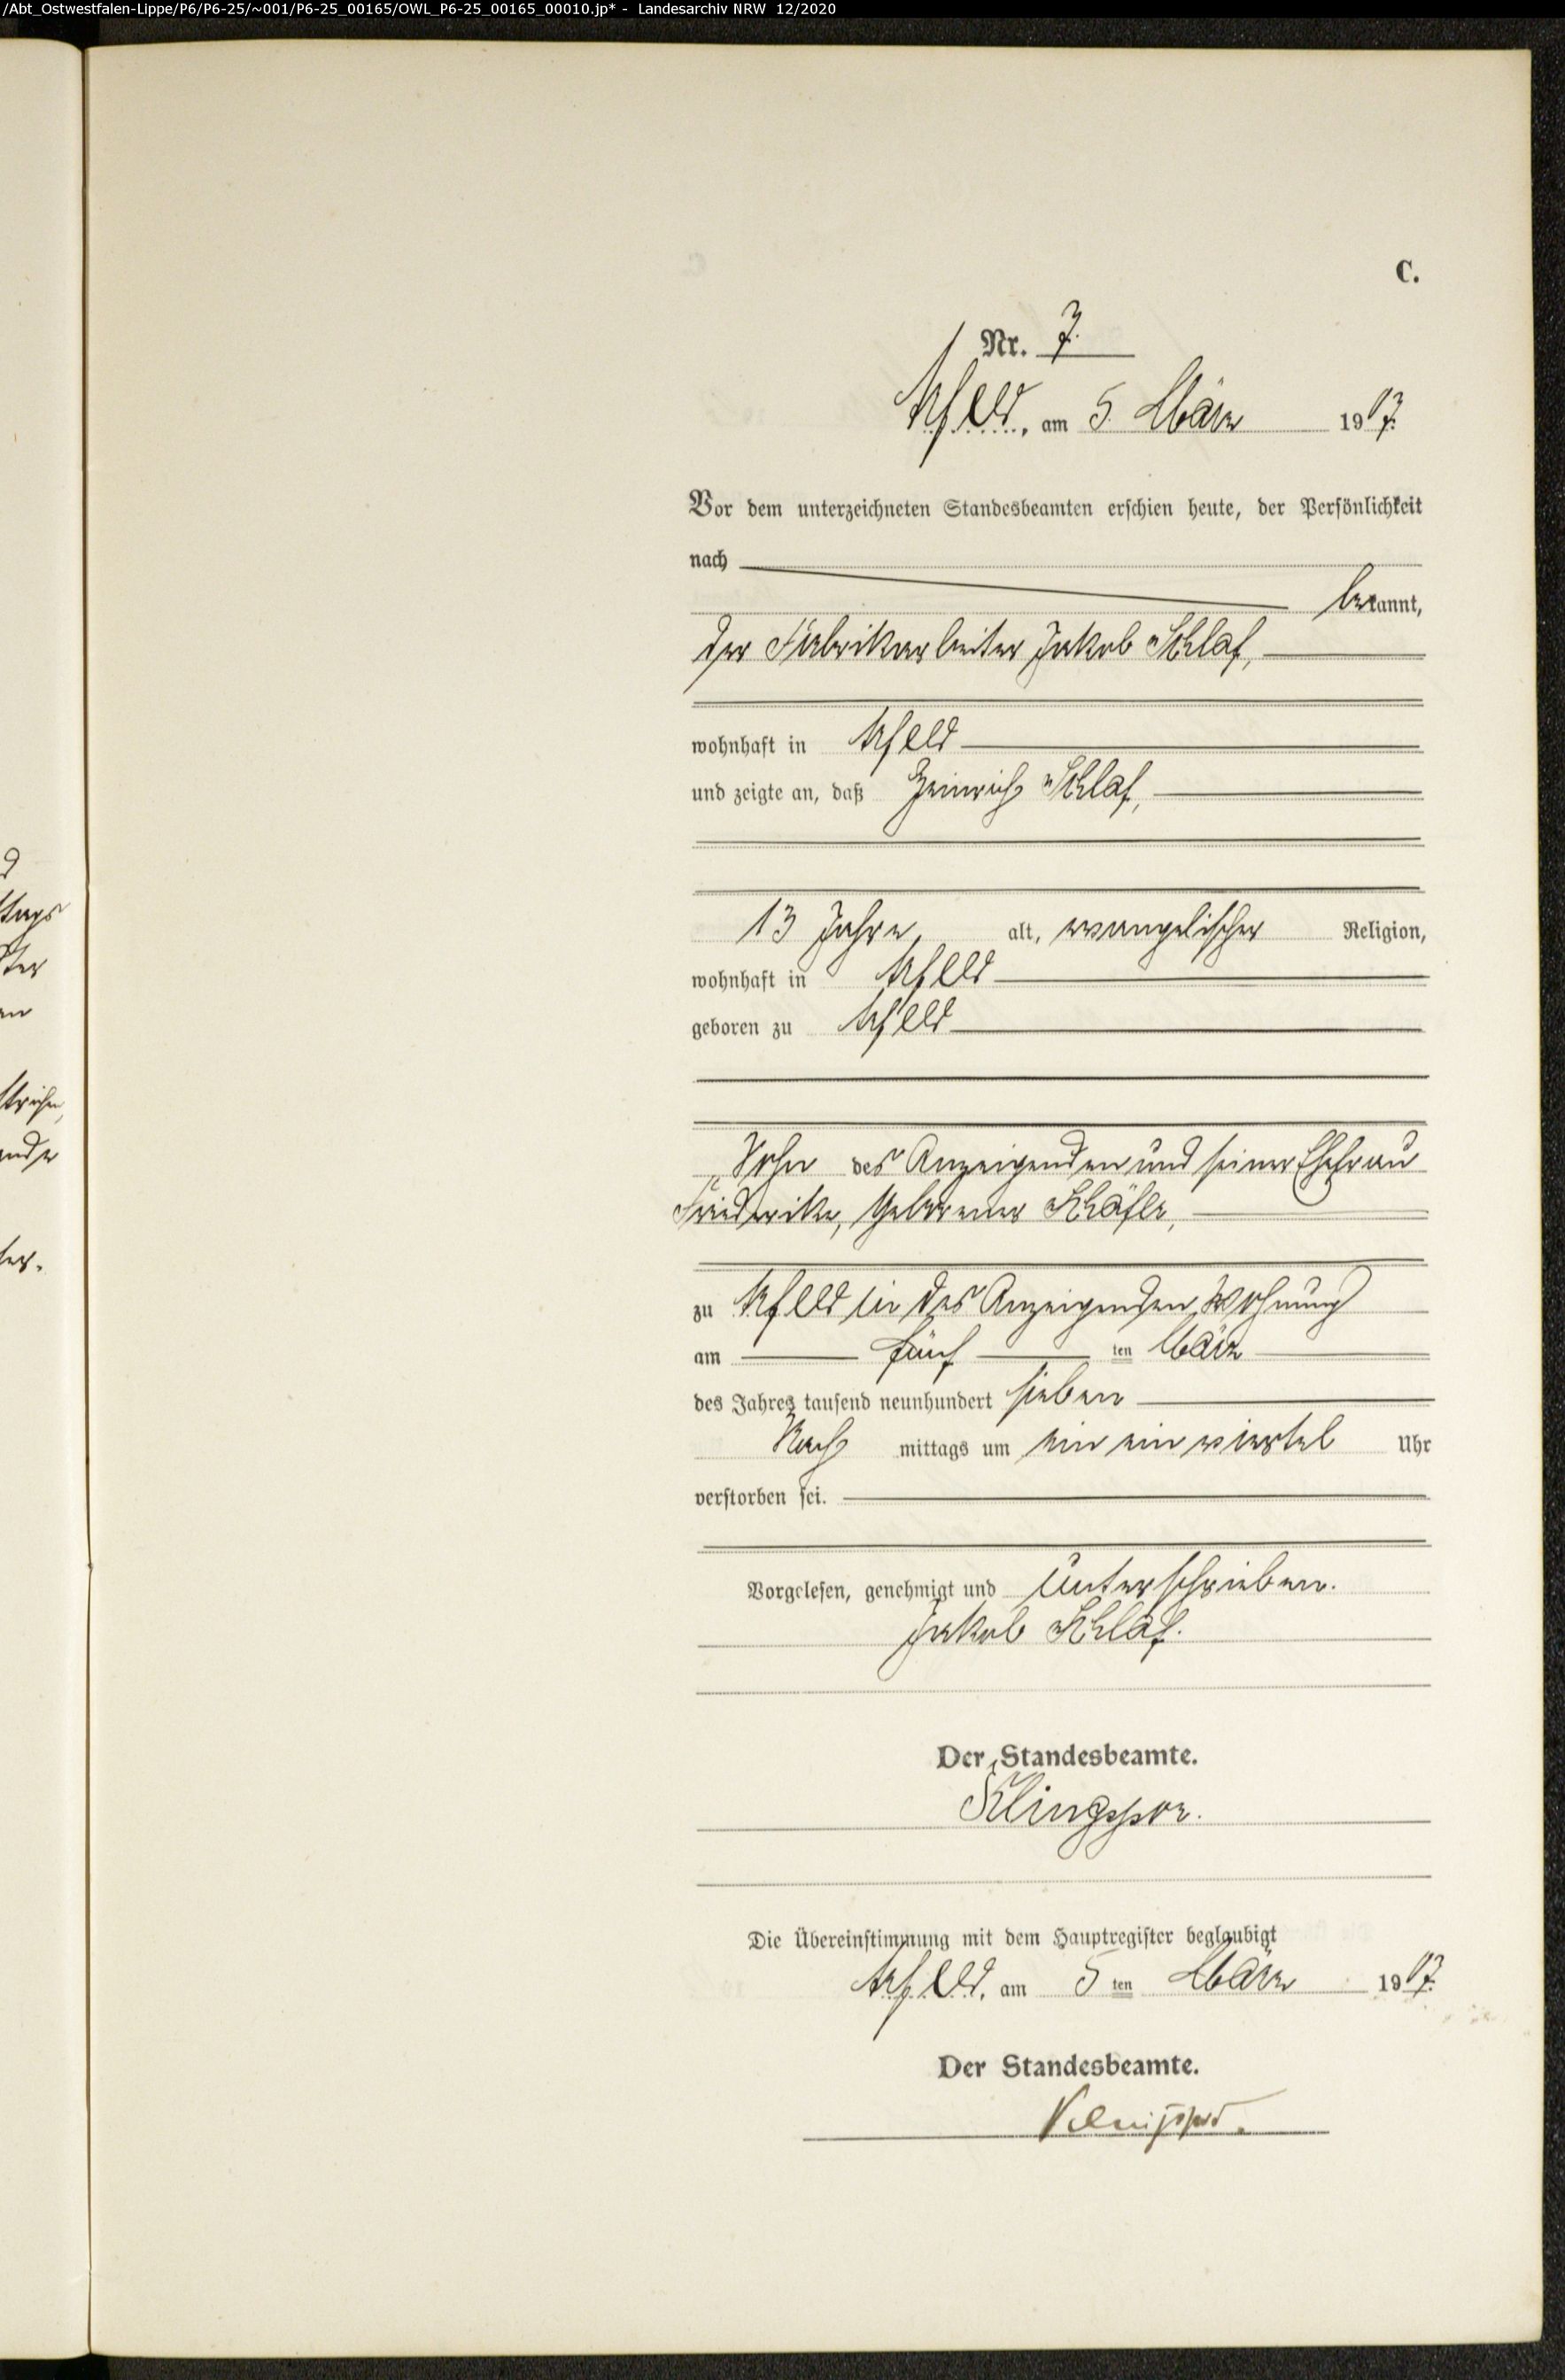 /Abt_Ostwestfalen-Lippe/P6/P6-25/~001/P6-25_00165/OWL_P6-25_00165_00010.jp* - Landesarchiv NRW 12/2020
C.
Nr. 7.
Arfeld, am 5. März 1907.
Vor dem unterzeichneten Standesbeamten erschien heute, der Persönlichkeit
nach
bekannt,
der Fabrikarbeiter Jakob Schlaf,
wohnhaft in Arfeld
und zeigte an, daß Heinrich Schlaf,
13 Jahre, alt, evangelischer Religion,
wohnhaft in Arfeld
geboren zu Arfeld
Sohn des Anzeigenden und seiner Ehefrau
Friederike, geborener Schäfer,
zu Arfeld in des Anzeigenden Wohnung
am fünf ten März
des Jahres tausend neunhundert sieben
Nach mittags um ein ein viertel Uhr
verstorben sei.
Vorgelesen, genehmigt und unterschrieben.
Jakob Schlaf.
Der Standesbeamte.
Klingspor.
Die Übereinstimmung mit dem Hauptregister beglaubigt
Arfeld, am 5 ten März 1907.
Der Standesbeamte.
Klingspor.